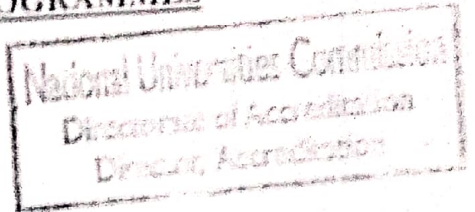 OGRAMMES
National Universities Commission
Directorate of Accreditation
Director, Accreditation